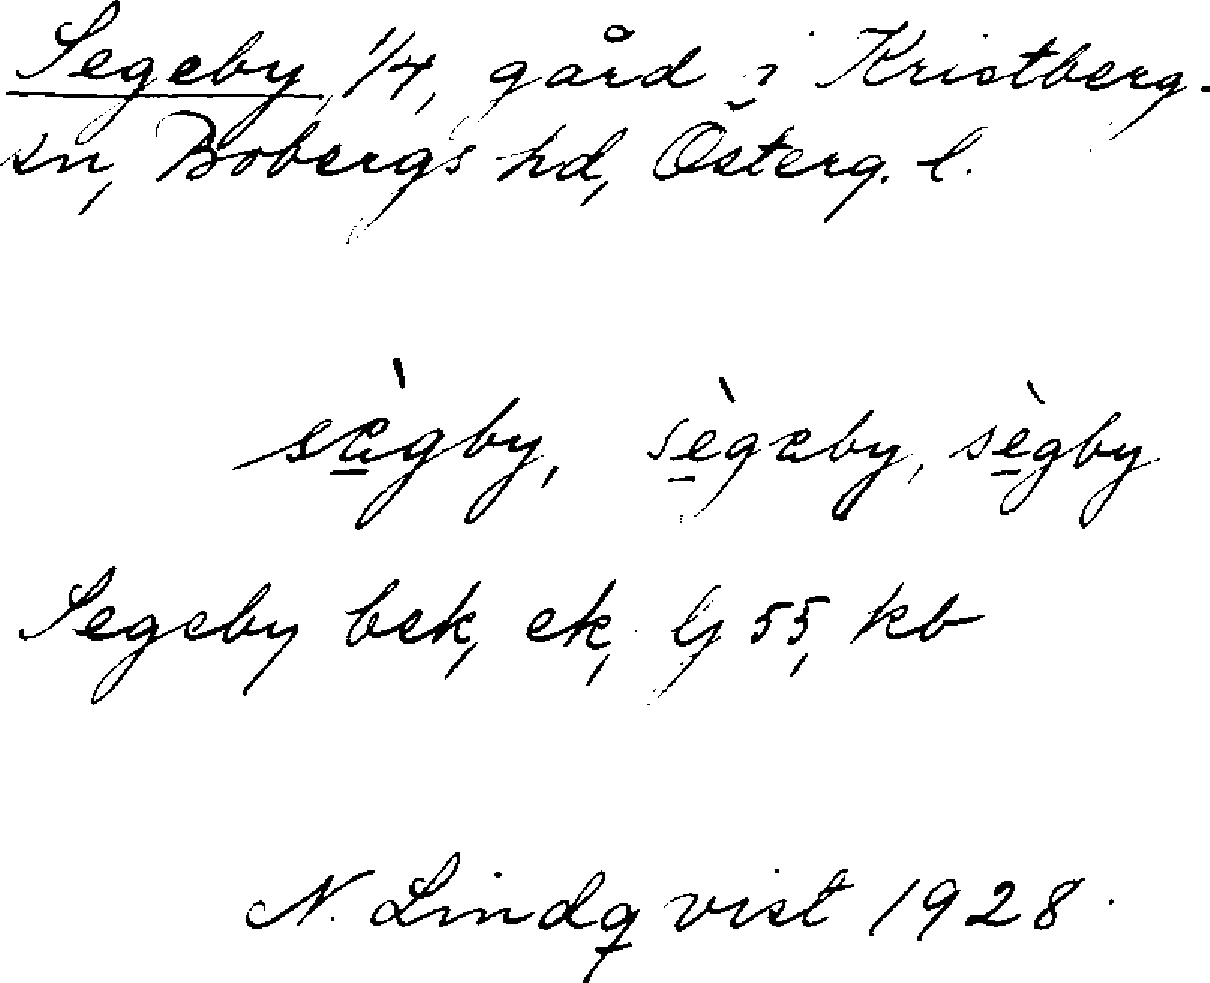 Segeby 1/4, gård i Kristberg.
sn, Bobergs hd, Österg. l.
sægby, sègeby, sègby
Segeby bek, ek, Gj 55, kb
N. Lindqvist 1928.